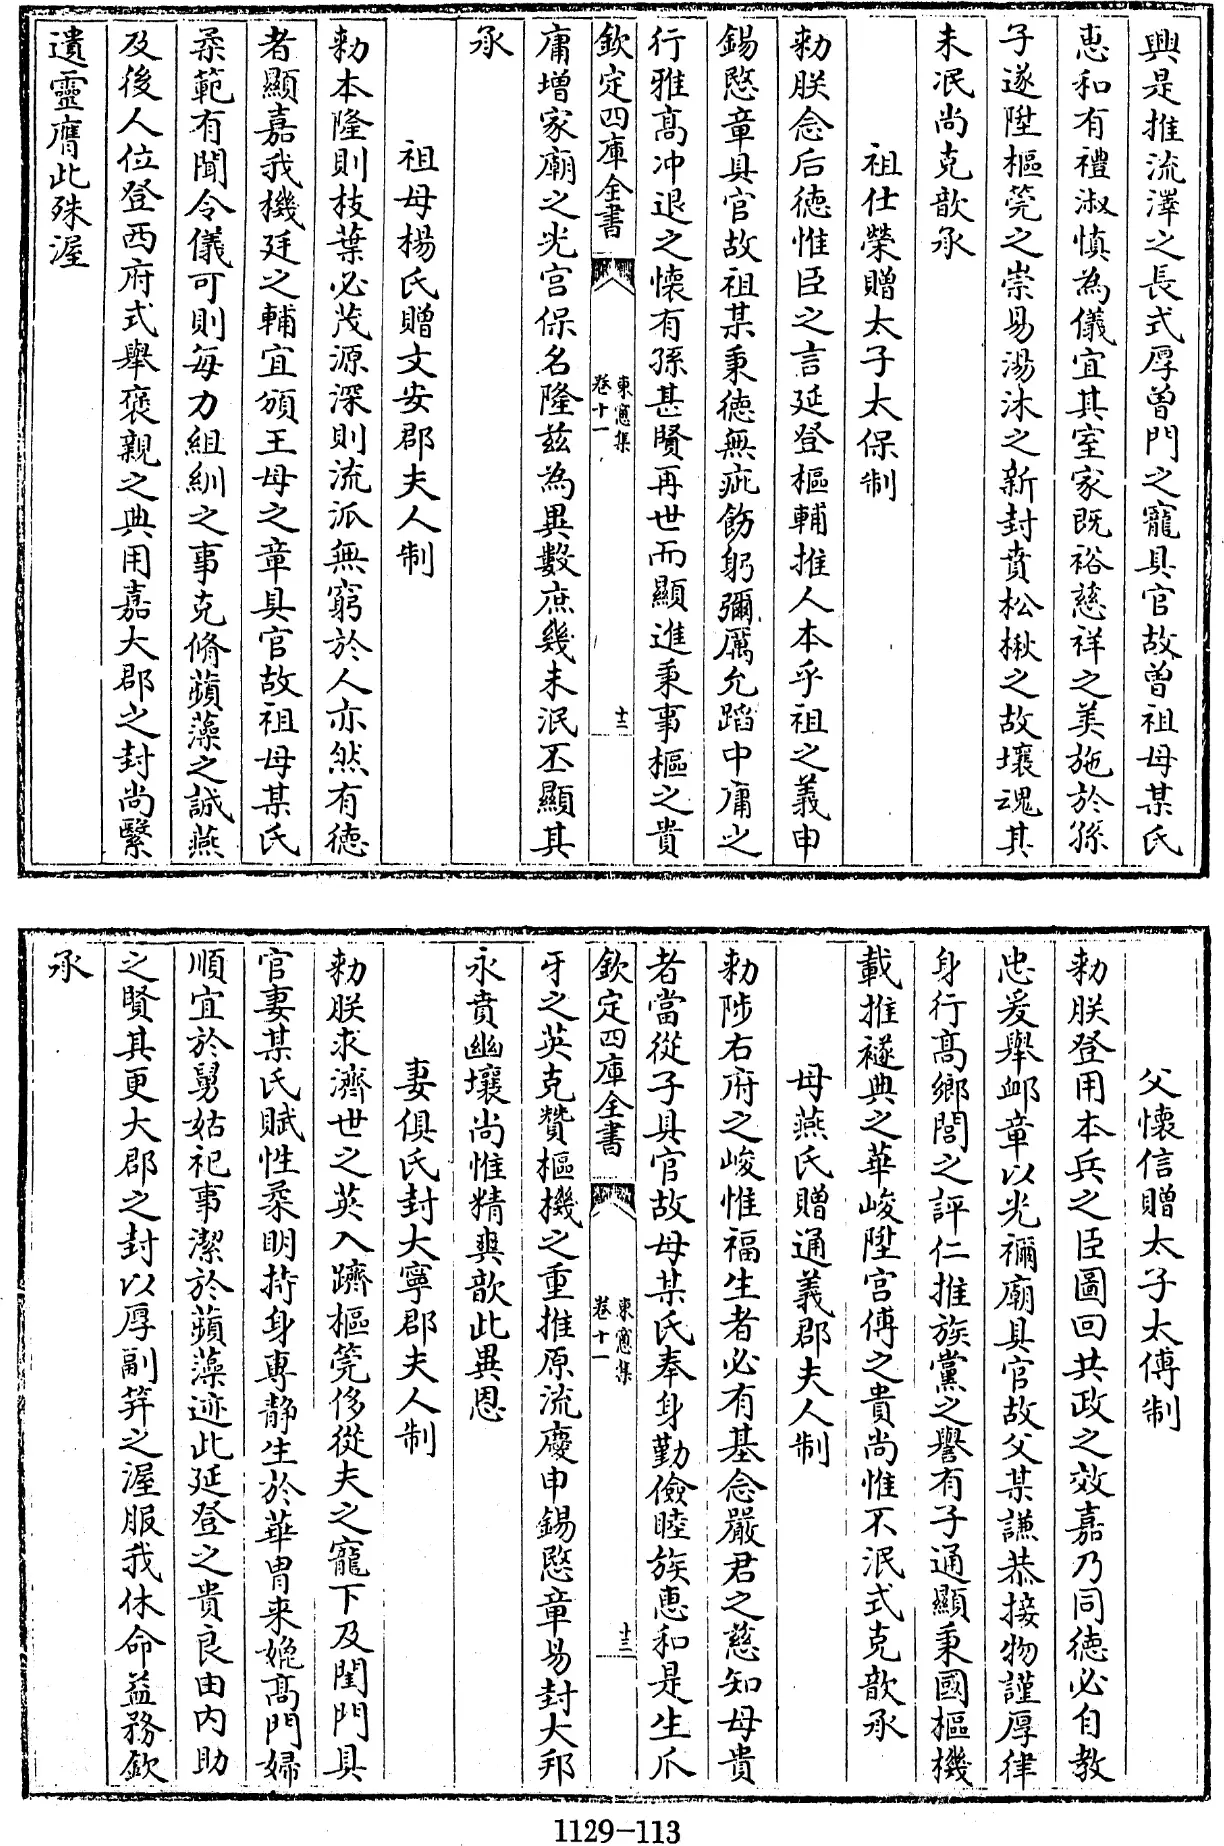 興是推流澤之長式厚曽門之寵具官故曽祖母某氏
恵和有禮淑慎為儀宜其室家既裕慈祥之美施於孫
子遂陞樞筦之崇易湯沐之新封賁松楸之故壤魂其
未泯尚克歆承
祖仕榮贈太子太保制
勅朕念后徳惟臣之言延登樞輔推人本乎祖之義申
錫愍章具官故祖某秉徳無疵飭躬彌厲允蹈中庸之
行雅髙冲退之懐有孫甚賢再世而顯進秉事樞之貴
欽定四庫全書
東窻集
卷十一
十二
庸増家廟之光宫保名隆兹為異數庶幾未泯丕顯其
承
祖母楊氏贈文安郡夫人制
勅本隆則枝葉必茂源深則流派無窮於人亦然有徳
者顯嘉我機廷之輔宜頒王母之章具官故祖母某氏
柔範有聞令儀可則毎力組紃之事克脩蘋藻之誠燕
及後人位登西府式舉褒親之典用嘉大郡之封尚繄
遺靈膺此殊渥
父懐信贈太子太傅制
勅朕登用本兵之臣圖回共政之效嘉乃同徳必自教
忠爰舉䘏章以光禰廟具官故父某謙恭接物謹厚律
身行髙鄉閭之評仁推族黨之譽有子通顯秉國樞機
載推襚典之華峻陞宫傅之貴尚惟不泯式克歆承
母燕氏贈通義郡夫人制
勅陟右府之峻惟福生者必有基念嚴君之慈知母貴
者當從子具官故母某氏奉身勤儉睦族恵和是生爪
欽定四庫全書
東窻集
卷十一
十三
牙之英克贊樞機之重推原流慶申錫愍章易封大邦
永賁幽壤尚惟精爽歆此異恩
妻俱氏封大寧郡夫人制
勅朕求濟世之英入躋樞筦侈從夫之寵下及閨門具
官妻某氏賦性柔明持身專静生於華胄来嫓髙門婦
順宜於舅姑祀事潔於蘋藻迹此延登之貴良由内助
之賢其更大郡之封以厚副笄之渥服我休命益務欽
承
1129-113